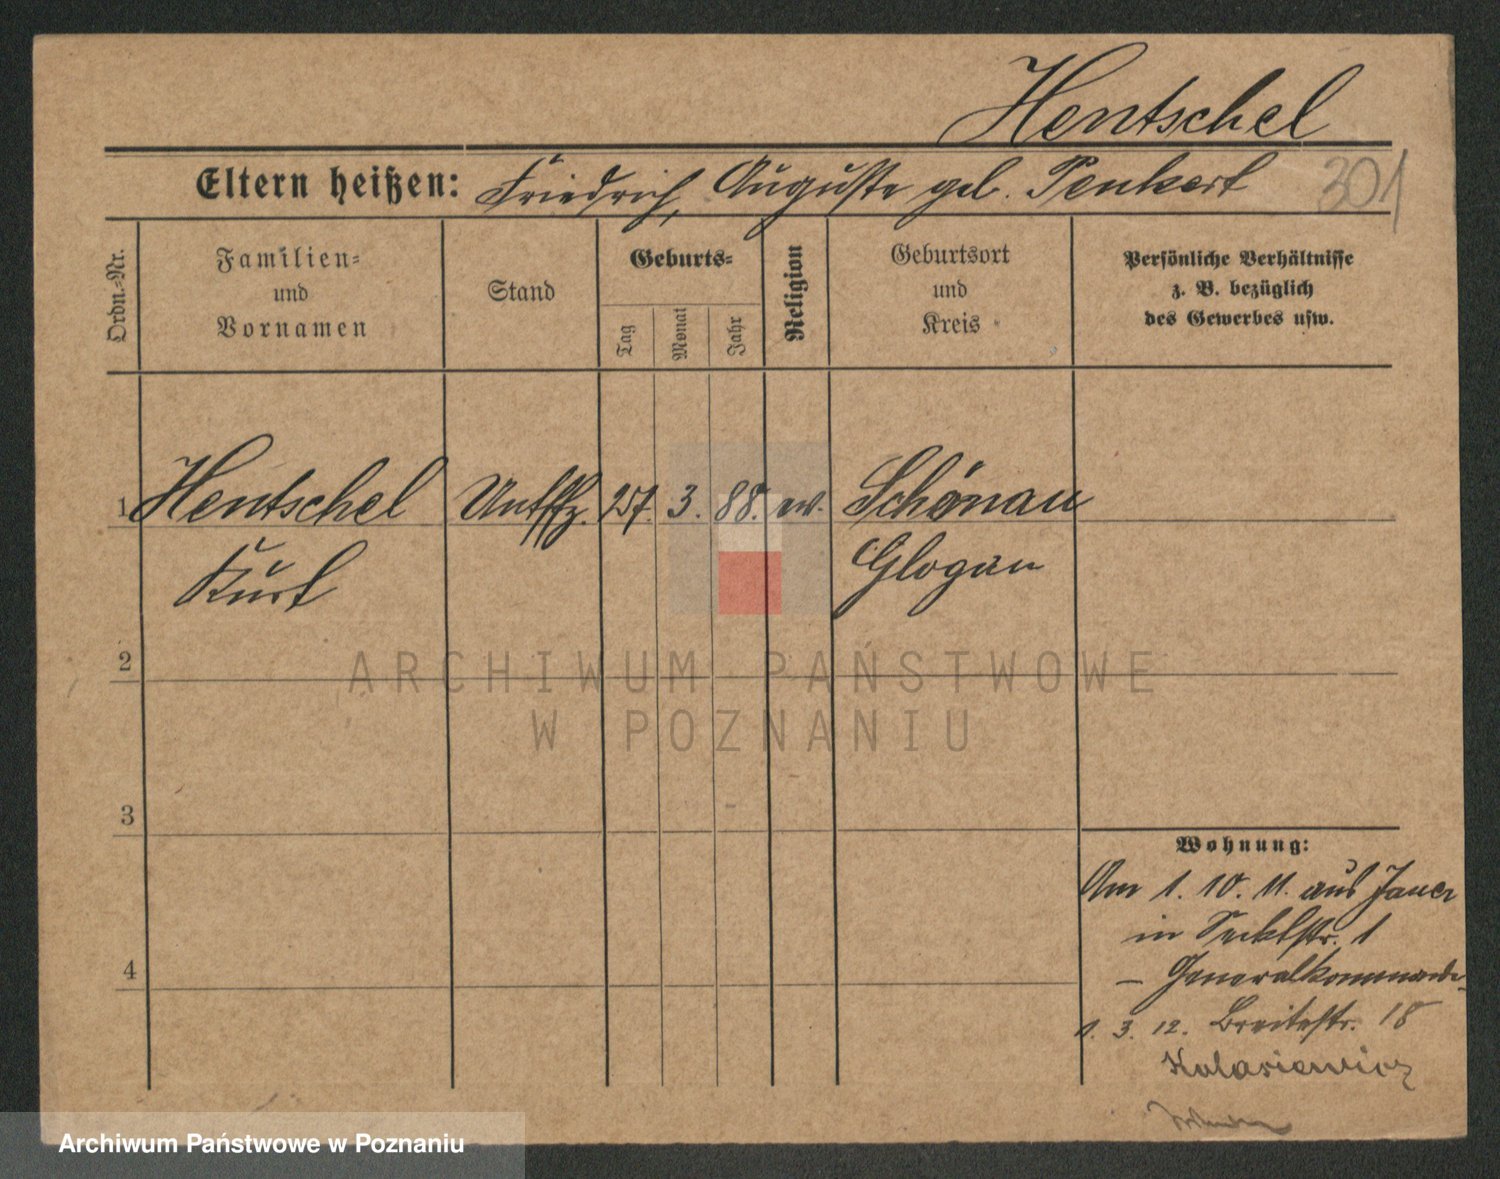 Hentschel
Eltern heißen: Friedrich, Auguste geb. Penkert 301
Ordn.-Nr.
Familien-
und
Vornamen
Stand
Geburts-
Tag
Monat
Jahr
Religion
Geburtsort
und
Kreis
Persönliche Verhältnisse
z. B. bezüglich
des Gewerbes usw.
1 Hentschel Untffz. 27. 3. 88. ev. Schönau
Kurt Glogau
2
ARCHIWUM PAŃSTWOWE
W POZNANIU
3
Wohnung:
Am 1. 10. 11. aus Jauer
in 1
4
– Generalkommando
1. 3. 12. Breitestr. 18
Kolasiewicz
Archiwum Państwowe w Poznaniu